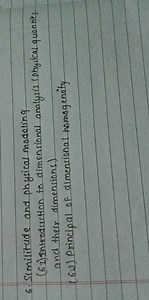 6. Similitude and physical modeling
(6.1) Introduction to dimensional analysis (physical quantity
and their dimensions)
(6.2) Principal of dimensional homogenaity